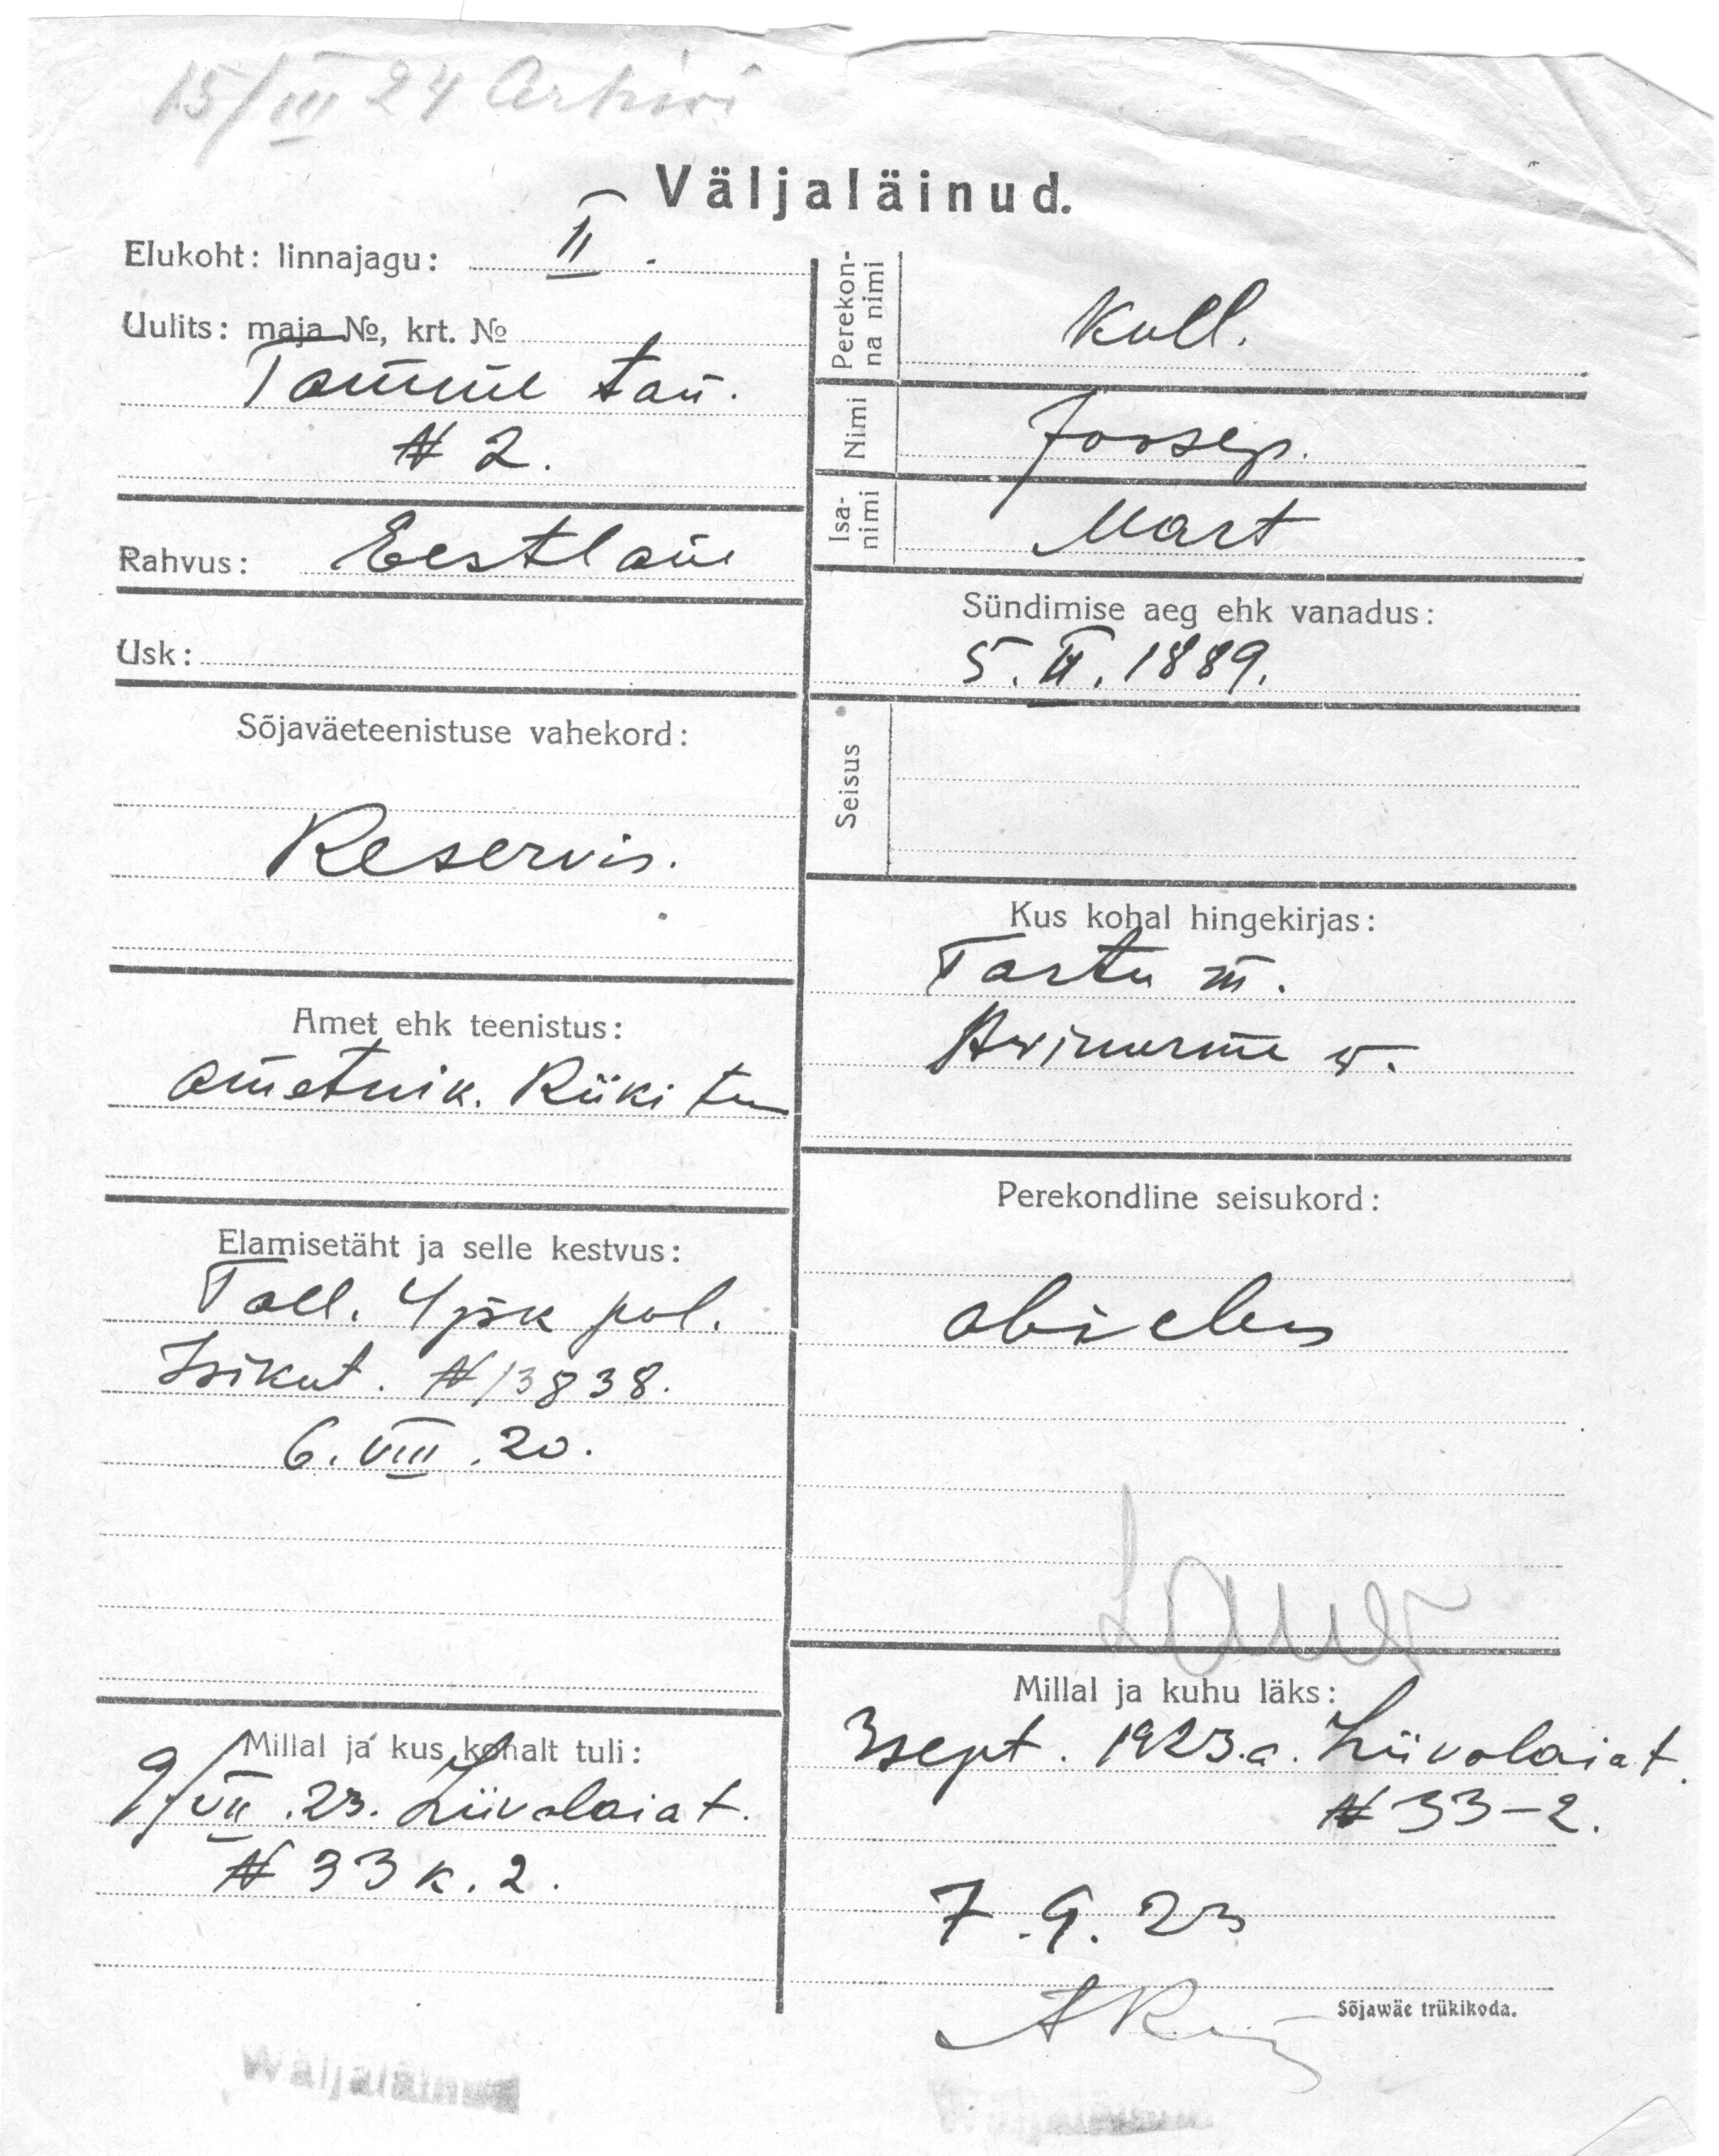 15/III 24 Arhivi
Väljaläinud.
Elukoht: linnajagu: II.
Uulits: maja №, krt. №
Tamme tän.
N 2.
Rahvus: Eestlane
Usk:
Sõjaväeteenistuse vahekord:
Reservis.
Amet ehk teenistus:
ametnik. Riiki
Elamisetäht ja selle kestvus:
Tall. 4 jsk pol.
Isikut. N 13838.
6. VIII. 20.
Millal ja kus kohalt tuli:
9/VII. 23. Liivalaia t.
N 33 k. 2.
Perekonna nimi
Kull.
Nimi
Joosep.
Isanimi
Mart
Sündimise aeg ehk vanadus:
5. II. 1889.
Seisus
Kus kohal hingekirjas:
Tartu m.
Avinurme v.
Perekondline seisukord:
abielus
Millal ja kuhu läks:
3 sept. 1923.a. Liivalaia t.
N 33-2.
7. 9. 23
Sõjawäe trükikoda.
Wäljaläinud